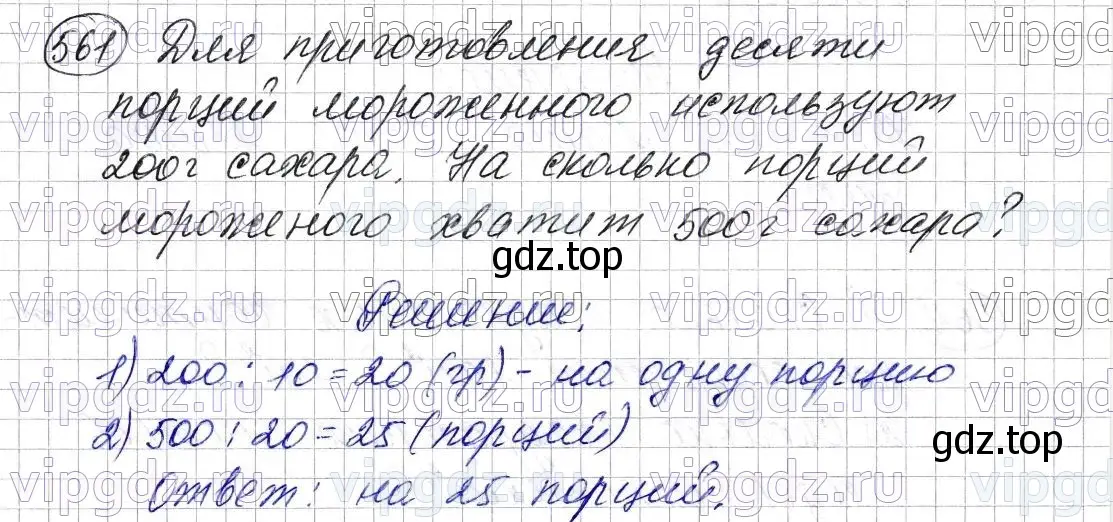 561 Для приготовления десяти
порций мороженного используют
200г сахара. На сколько порций
мороженого хватит 500г сахара?
gdz.top
Решение:
1) 200 : 10 = 20 (гр) - на одну порцию
2) 500 : 20 = 25 (порций)
gdz.top
Ответ: на 25 порций.
vipgdz.ru